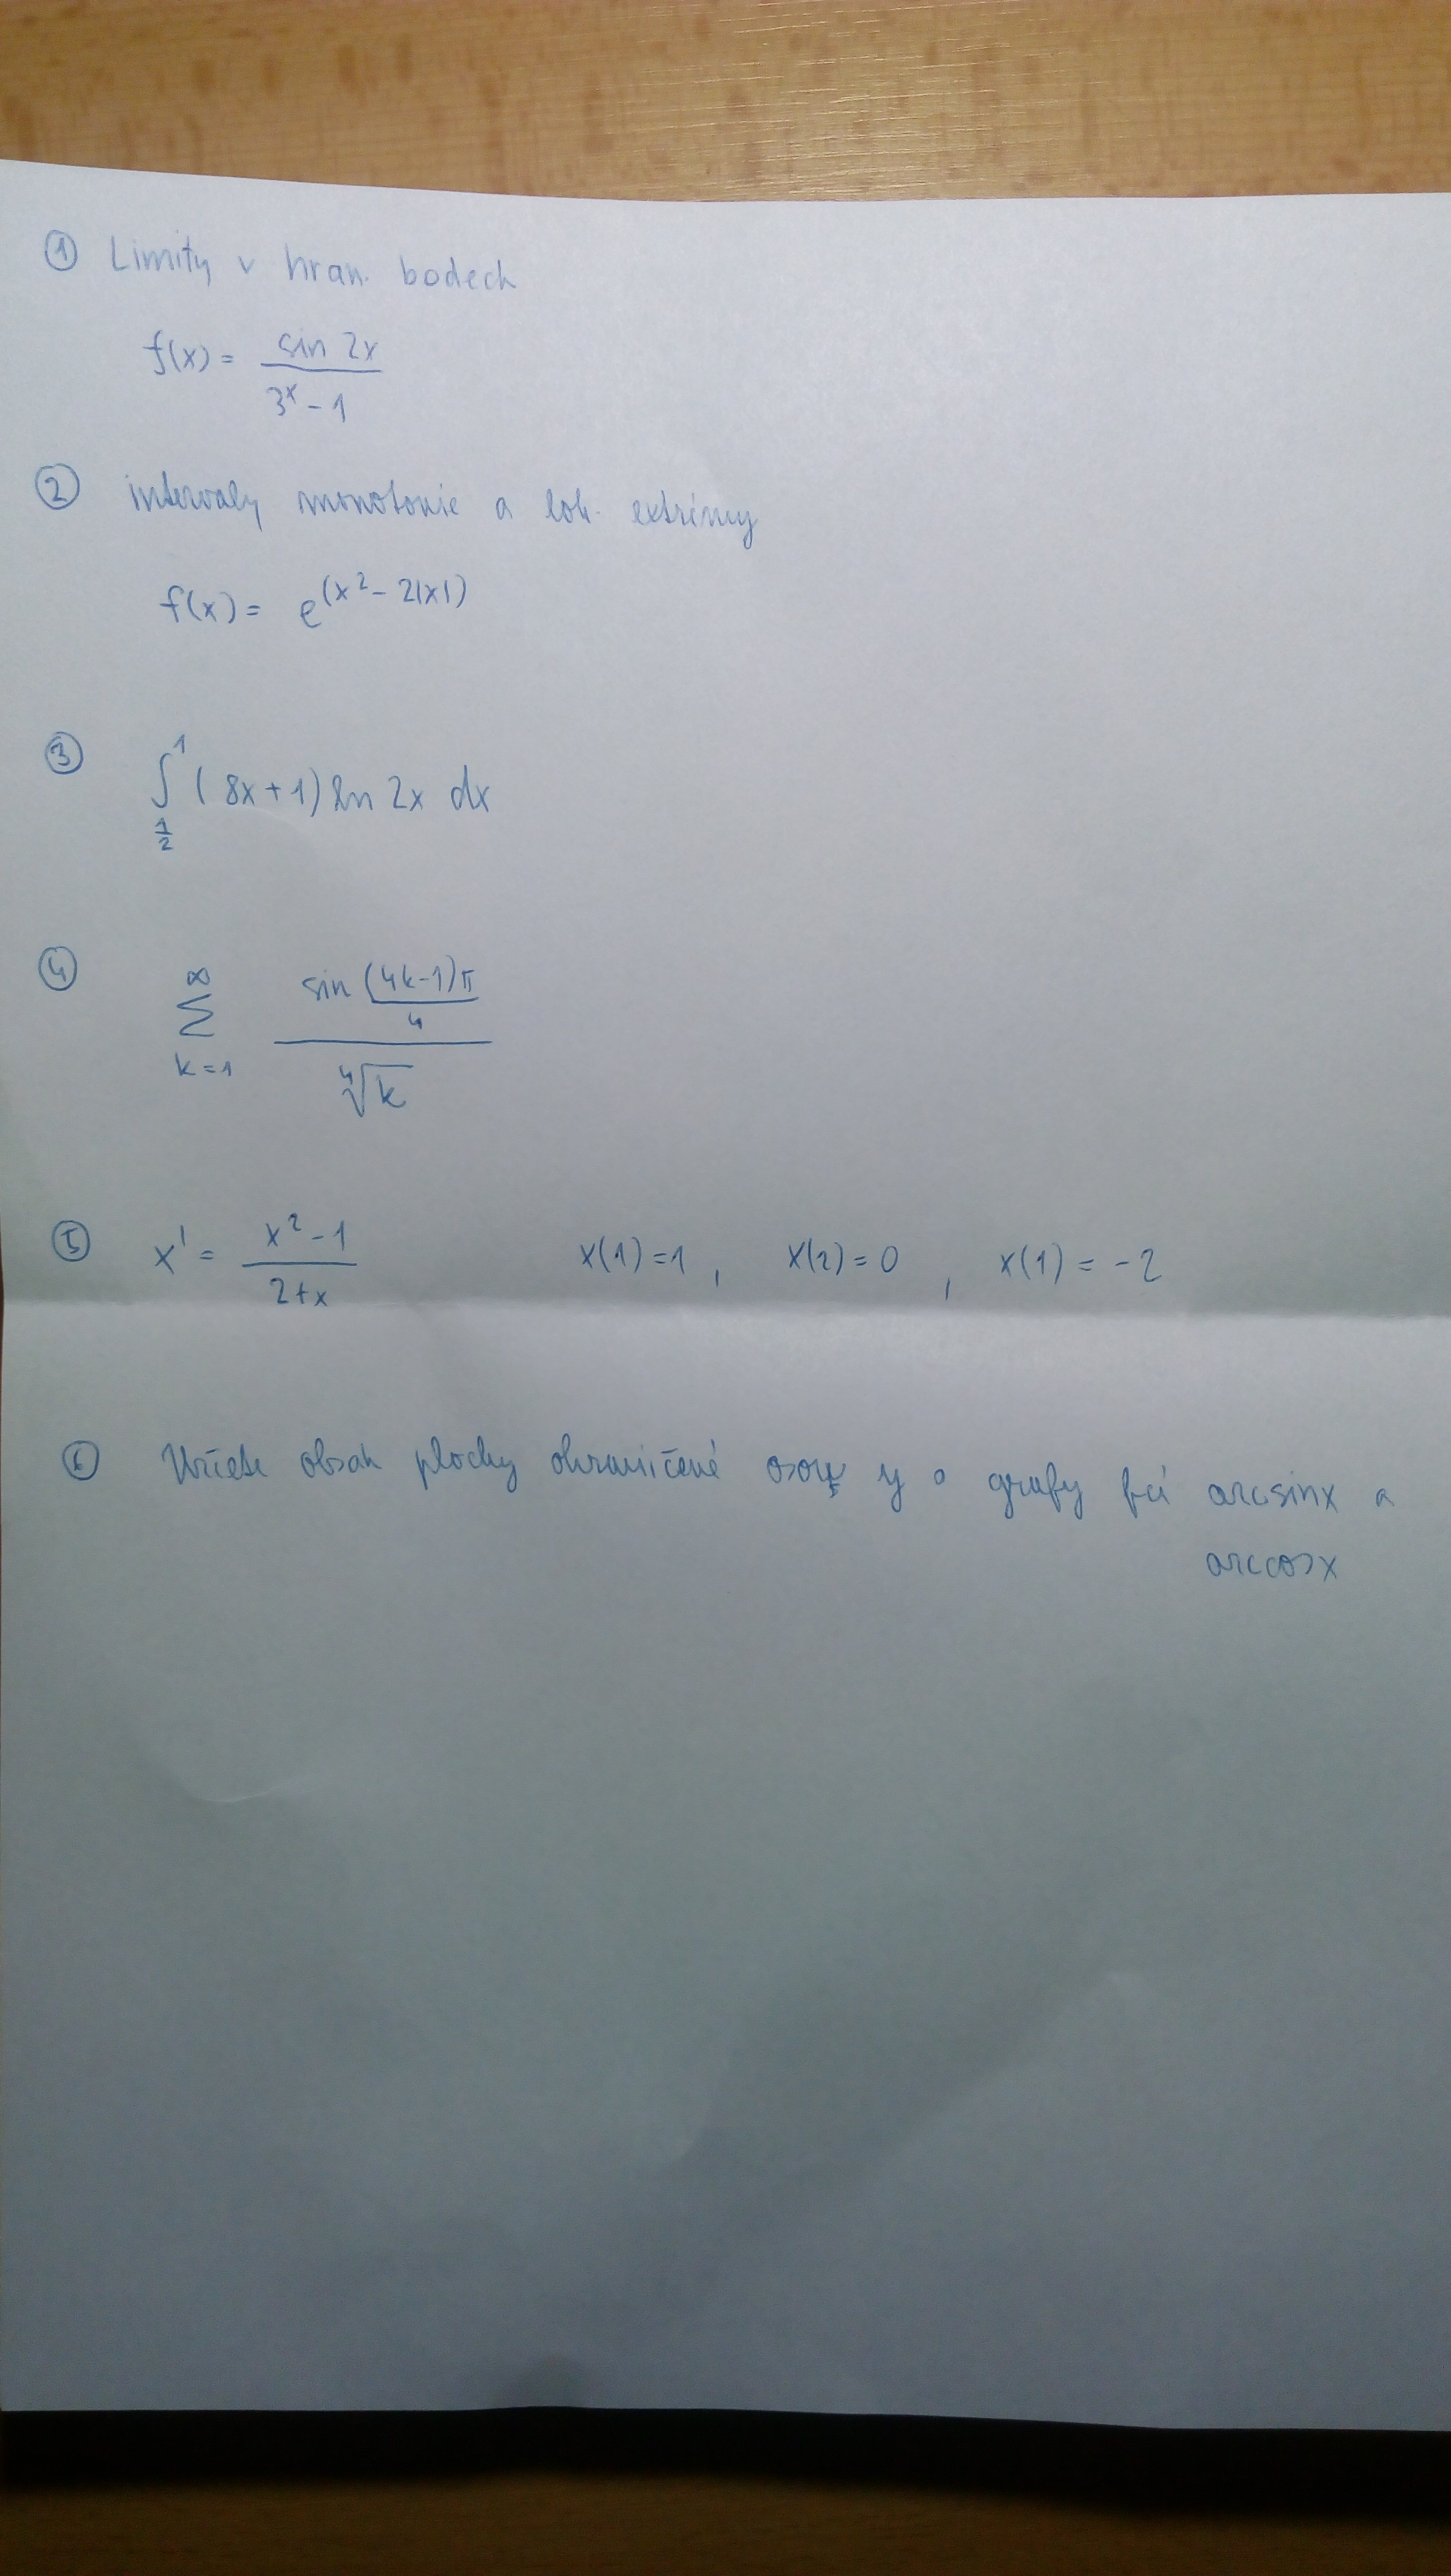 ① Limity v hran. bodech
f(x) = sin 2x / (3^x - 1)
② intervaly monotonie a lok. extrémy
f(x) = e^(x² - 2|x|)
③ ∫_{1/2}^{1} (8x+1) ln 2x dx
④ ∑_{k=1}^{∞} sin ((4k-1)π / 4) / ⁴√k
⑤ x' = (x² - 1) / (2+x)   x(1)=1 , x(2)=0 , x(1) = -2
⑥ Určete obsah plochy ohraničené osou y a grafy fcí arcsinx a
arccosx